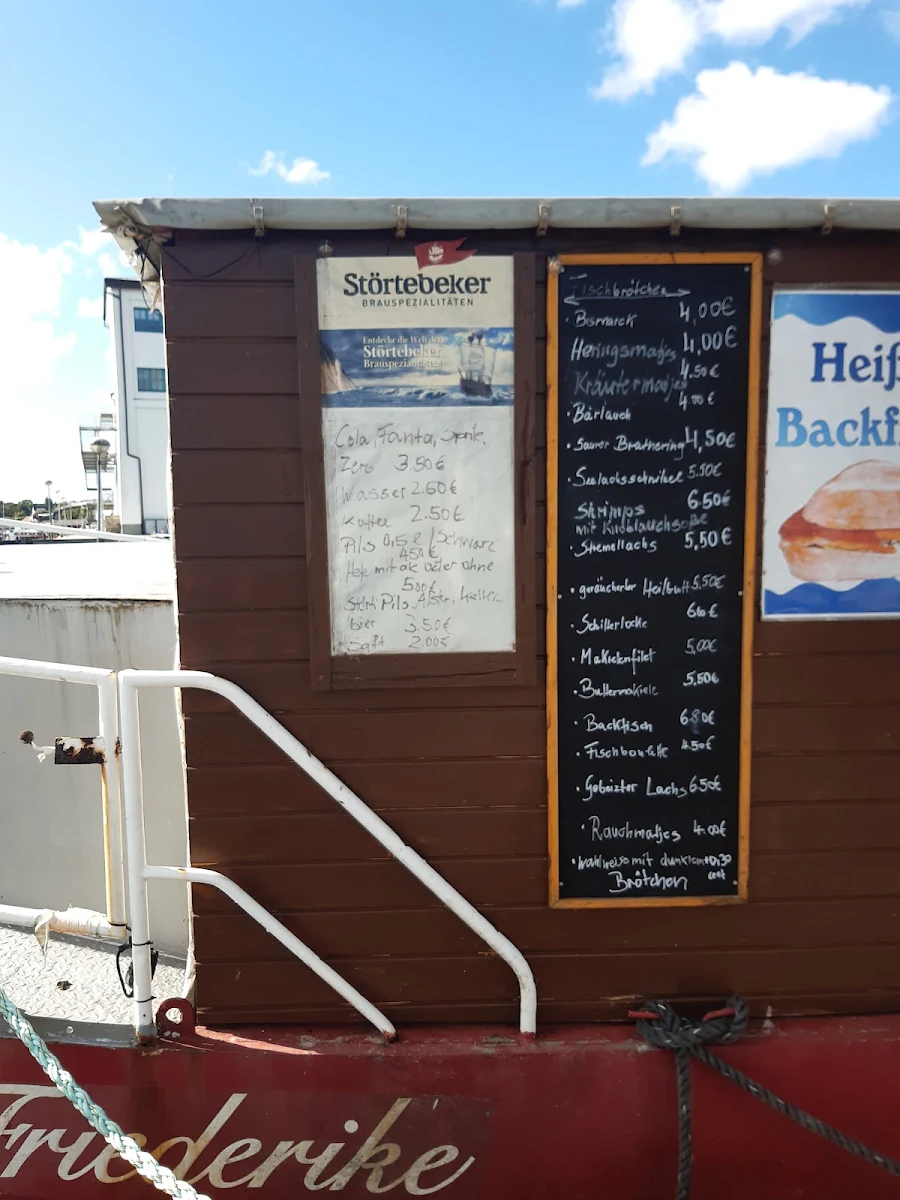 Störtebeker
BRAUSPEZIALITÄTEN
Entdecke die Welt der
Störtebeker
Brauspezialitäten
Cola, Fanta, Sprite,
Zero 3.50€
Wasser 2.60€
Kaffee 2.50€
Pils 0,5l / Schwarz
450€
Hefe mit alk oder ohne
500€
Störti Pils, Alster, Keller
bier 3.50€
Saft 2.00€
Fischbrötchen
• Bismarck 4,00€
Heringsmatjes 4,00€
Kräutermatjes 4.50€
• Bärlauch 4.00€
• Saurer Brathering 4,50€
• Seelachsschnitzel 5.50€
Shrimps 6.50€
mit Knoblauchsoße
• Stremellachs 5,50€
• geräucherter Heilbutt 5,50€
• Schillerlocke 600€
• Makrelenfilet 5,00€
• Buttermakrele 5,50€
• Backfisch 680€
• Fischboulette 4.50€
• Gebeizter Lachs 6.50€
• Rauchmatjes 4.00€
• Wahlweise mit dunklem +0,30
Brötchen cent
Heiß
Backf
Friederike